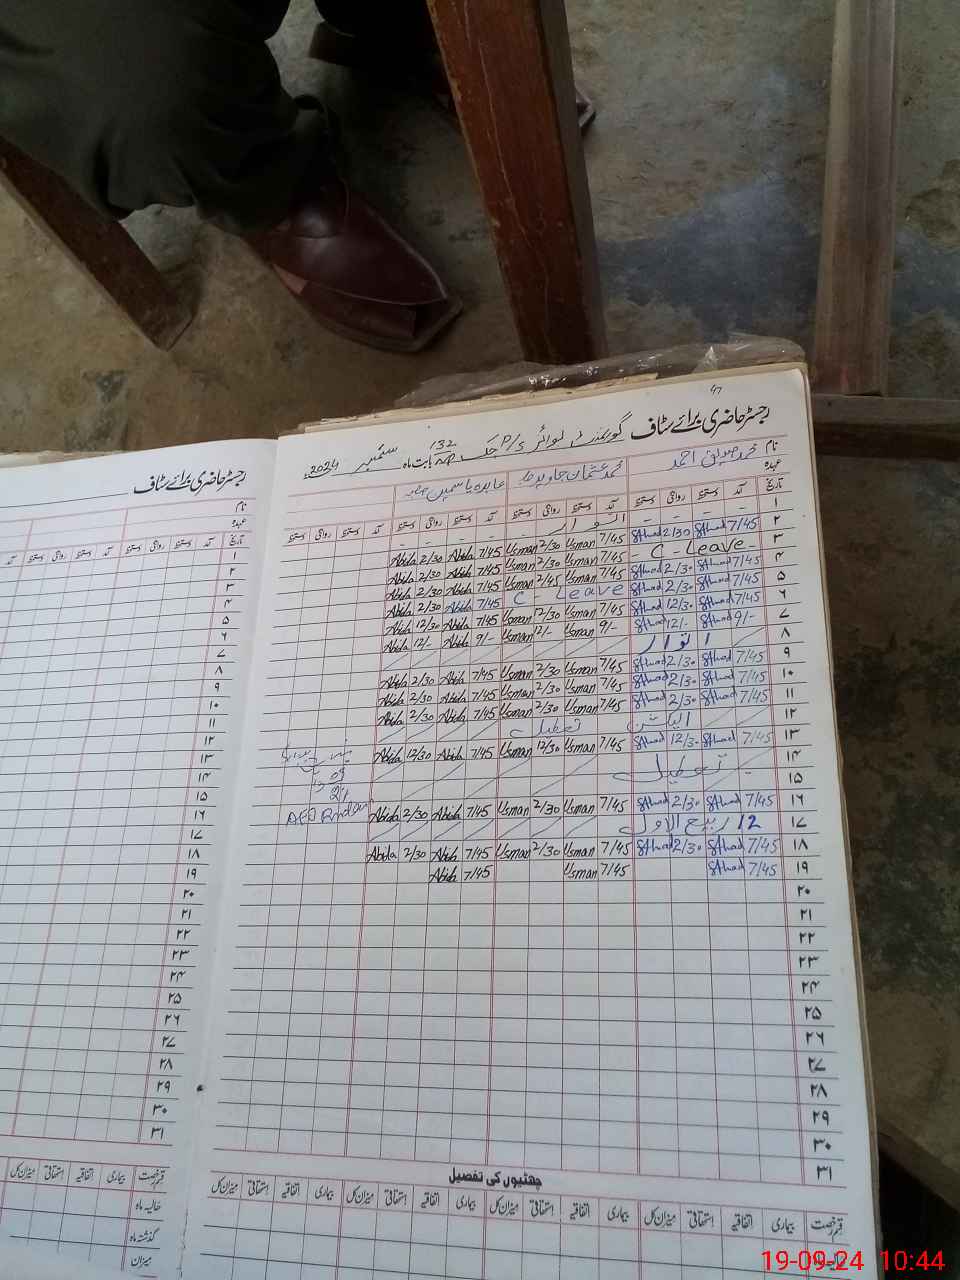 رجسٹر حاضری برائے سٹاف گورنمنٹ بوائز P/S چک 132 بابت ماہ ستمبر 2024ء
نام محمد صدیق احمد محمد عثمان جاوید عابدہ یاسمین
عہدہ
تاریخ آمد دستخط روانگی دستخط آمد دستخط روانگی دستخط آمد دستخط روانگی دستخط آمد دستخط روانگی دستخط
۱ اتوار
۲ 7/45 2/30 7/45 Usman 2/30 Usman 7/45 Abida 2/30 Abida
۳ C-Leave 7/45 Usman 2/30 Usman 7/45 Abida 2/30 Abida
۴ 7/45 2/30 7/45 Usman 2/45 Usman 7/45 Abida 2/30 Abida
۵ 7/45 2/30 C-Leave 7/45 Abida 2/30 Abida
۶ 7/45 12/30 7/45 Usman 12/30 Usman 7/45 Abida 12/30 Abida
۷ 9/- 12/- 9/- Usman 12/- Usman 9/- Abida 12/- Abida
۸ اتوار
۹ 7/45 2/30 7/45 Usman 2/30 Usman 7/45 Abida 2/30 Abida
۱۰ 7/45 2/30 7/45 Usman 2/30 Usman 7/45 Abida 2/30 Abida
۱۱ 7/45 2/30 7/45 Usman 2/30 Usman 7/45 Abida 2/30 Abida
۱۲ الیکشن تعطیل
۱۳ 7/45 12/30 7/45 Usman 12/30 Usman 7/45 Abida 12/30 Abida
۱۴ تعطیل
۱۵
۱۶ 7/45 2/30 7/45 Usman 2/30 Usman 7/45 Abida 2/30 Abida
۱۷ 12 ربیع الاول
۱۸ 7/45 2/30 7/45 Usman 2/30 Usman 7/45 Abida 2/30 Abida
۱۹ 7/45 7/45 Usman 7/45 Abida
۲۰
۲۱
۲۲
۲۳
۲۴
۲۵
۲۶
۲۷
۲۸
۲۹
۳۰
۳۱
13 09
24
AEO
چھٹیوں کی تفصیل
قسم رخصت بیماری اتفاقیہ استحقاقی میزان کل بیماری اتفاقیہ استحقاقی میزان کل بیماری اتفاقیہ استحقاقی میزان کل بیماری اتفاقیہ استحقاقی میزان کل
رجسٹر حاضری برائے سٹاف
نام
عہدہ
تاریخ آمد دستخط روانگی دستخط آمد دستخط روانگی دستخط آمد
۱
۲
۳
۴
۵
۶
۷
۸
۹
۱۰
۱۱
۱۲
۱۳
۱۴
۱۵
۱۶
۱۷
۱۸
۱۹
۲۰
۲۱
۲۲
۲۳
۲۴
۲۵
۲۶
۲۷
۲۸
۲۹
۳۰
۳۱
قسم رخصت بیماری اتفاقیہ استحقاقی میزان کل
حالیہ ماہ
گذشتہ ماہ
میزان
19-09-24 10:44